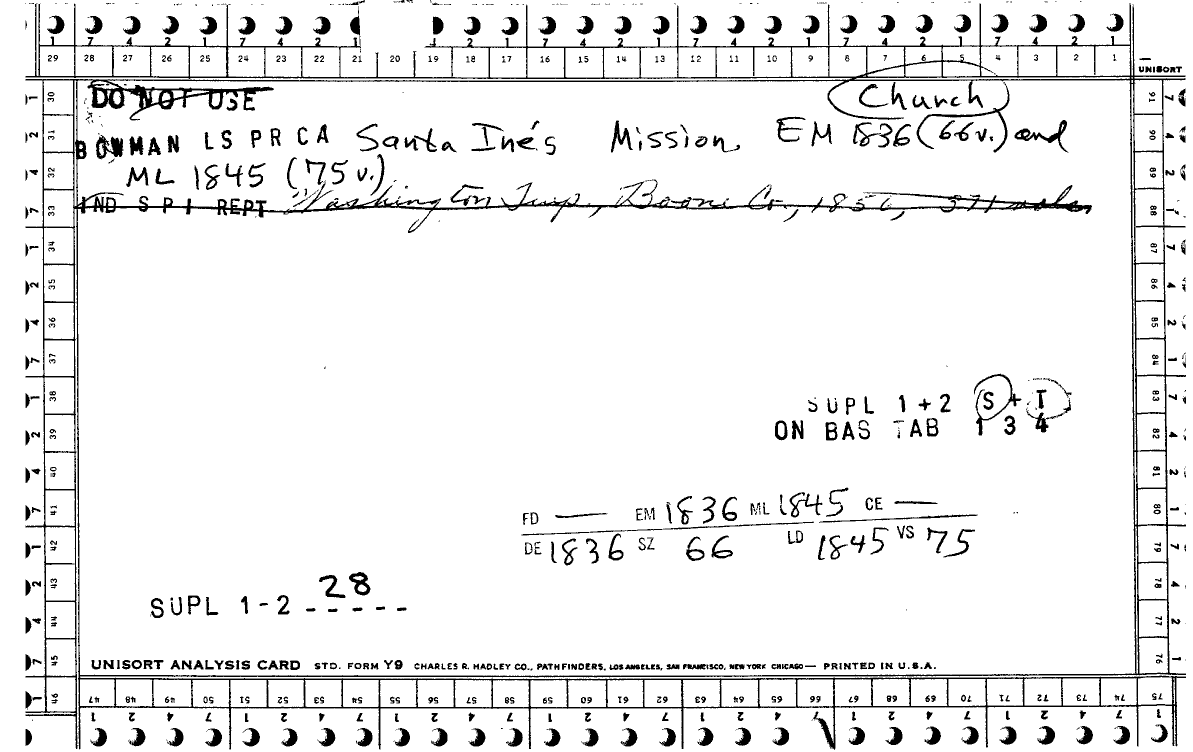 1 7 4 2 1 7 4 2 1 4 2 1 7 4 2 1 7 4 2 1 7 4 2 1
29 28 27 26 25 24 23 22 21 20 19 18 17 16 15 14 13 12 11 10 9 8 7 6 5 4 3 2 1
UNISORT
DO NOT USE
Church
BOWMAN LS PR CA Santa Inés Mission, EM 1836 (66v.) and
ML 1845 (75 v.)
IND S P I REPT Washington Twp., Boone Co., 185
SUPL 1+2 S + T
ON BAS TAB 1 3 4
FD — EM 1836 ML 1845 CE —
DE 1836 SZ 66 LD 1845 VS 75
28
SUPL 1-2 - - - - -
UNISORT ANALYSIS CARD STD. FORM Y9 CHARLES R. HADLEY CO., PATHFINDERS, LOS ANGELES, SAN FRANCISCO, NEW YORK CHICAGO — PRINTED IN U.S.A.
47 48 49 50 51 52 53 54 55 56 57 58 59 60 61 62 63 64 65 66 67 68 69 70 71 72 73 74 75
30 31 32 33 34 35 36 37 38 39 40 41 42 43 44 45 46
91 90 89 88 87 86 85 84 83 82 81 80 79 78 77 76